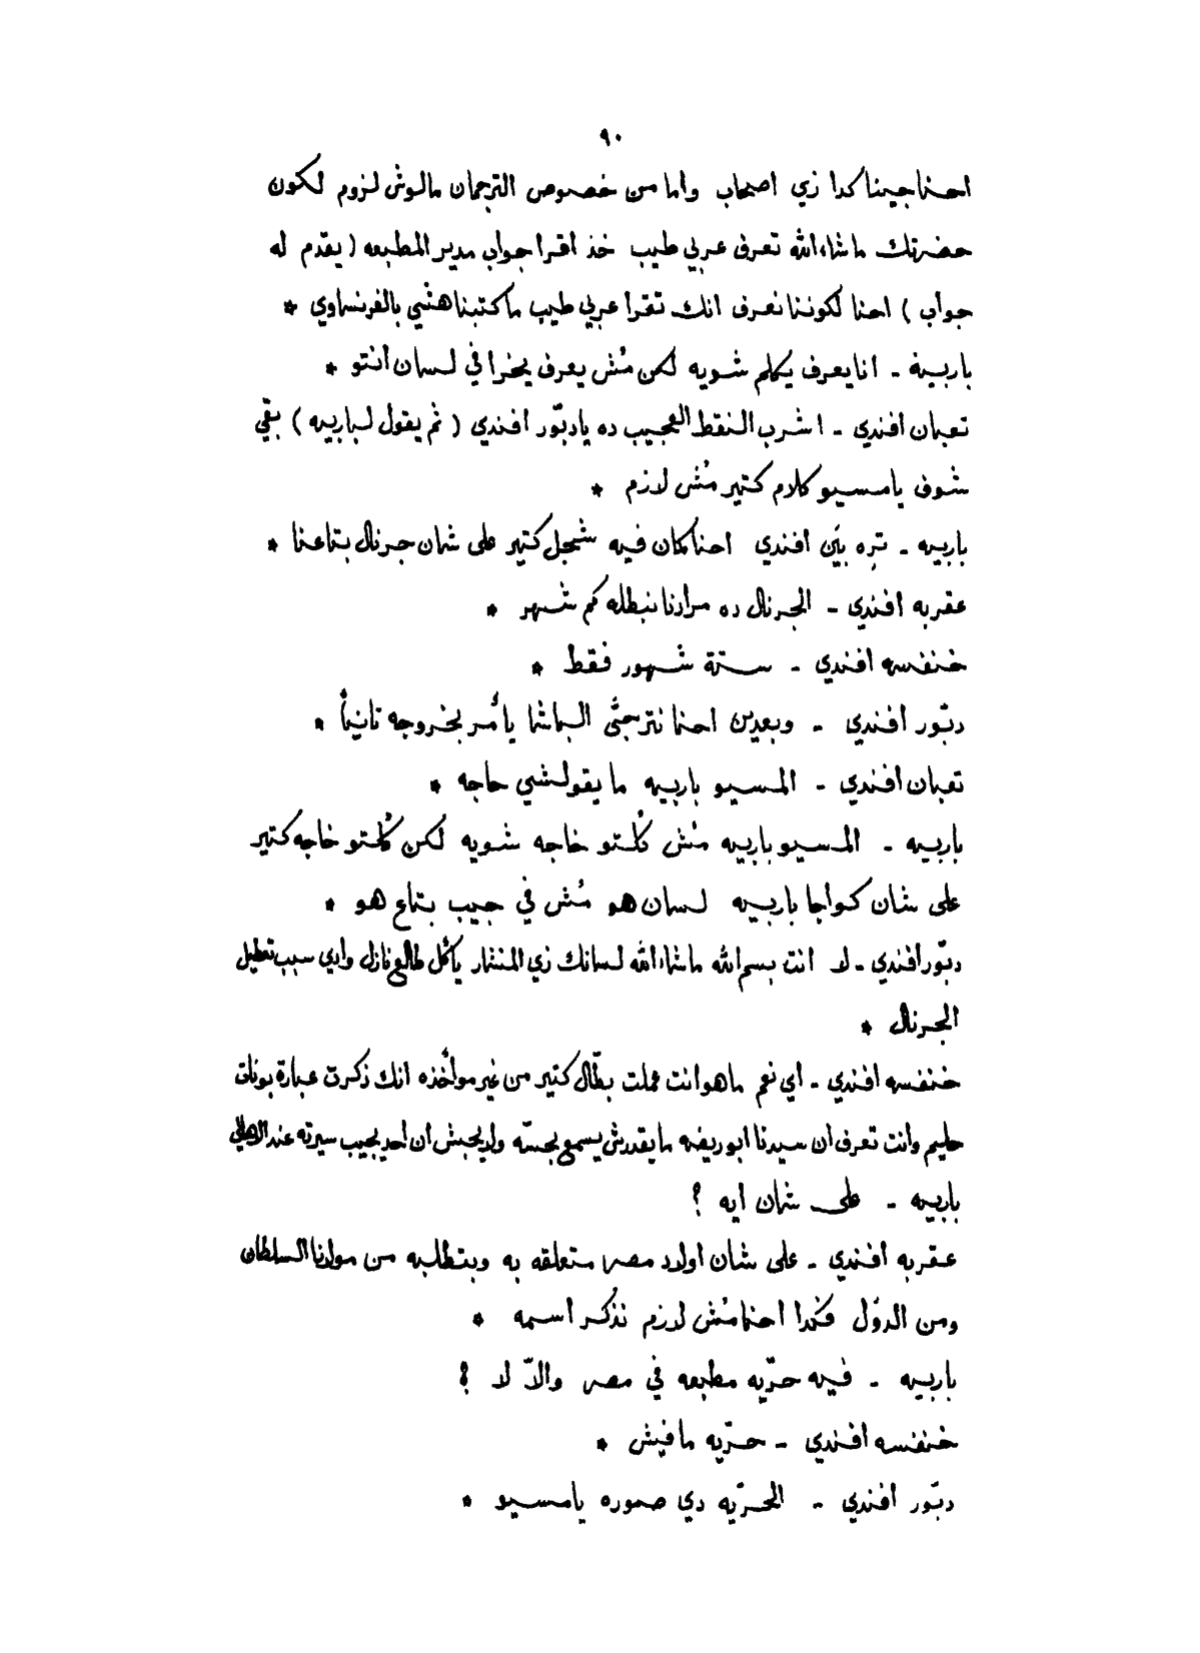 ٩٠
احنا جينا كدا زي اصحاب واما من خصوص الترجمان مالوش لزوم لكون
حضرتك ماشاءالله تعرف عربي طيب خذ اقرا جواب مدير المطبعه ( يقدّم له
جواب ) احنا لكوننا نعرف انك تقرا عربي طيب ما كتبناهشي بالفرنساوي *
باربيه - انا يعرف يكلم شويه لكن مُش يعرف يخرا في لسان انتو *
تعبان افندي - اشرب النقط العجيب ده يا دبّور افندي ( ثم يقول لباربيه ) بقي
شوف يا مسيو كلام كتير مُش لازم *
باربيه - تِره بيَن افندي احنا كان فيه شجل كتير على شان جرنال بتاعنا *
عقربه افندي - الجرنال ده مرادنا نبطله كم شهر *
خنفسه افندي - ستة شهور فقط *
دبّور افندي - وبعدين احنا نترجّى الباشا يأمر بخروجه تانياً *
تعبان افندي - المسيو باربيه ما يقولشي حاجه *
باربيه - المسيو باربيه مُش كُلتو خاجه شويه لكن كُلتو خاجه كتير
على شان كواجا باربيه لسان هو مُش في جيب بتاع هو *
دبّور افندي - لا انت بسم الله ماشاءالله لسانك زي المنشار يأكل طالع نازل وادي سبب تعطيل
الجرنال *
خنفسه افندي - اي نعم ماهو انت عملت بطّال كتير من غير مواخذه انك ذكرت عبارة بوناق
حليم وانت تعرف ان سيدنا ابو ريضه ما يقدرش يسمع بحسّه ولا يحبش ان احد يجيب سيرته عند الاهالي
باربيه - على شان ايه ؟
عقربه افندي - على شان اولاد مصر متعلقه به وبتطلبه من مولانا السلطان
ومن الدوَل فكدا احنا مُش لازم نذكر اسمه *
باربيه - فيه حرّيه مطبعه في مصر والاّ لا ؟
خنفسه افندي - حرّيه مافيش *
دبّور افندي - الحرّيه دي صوره يا مسيو *